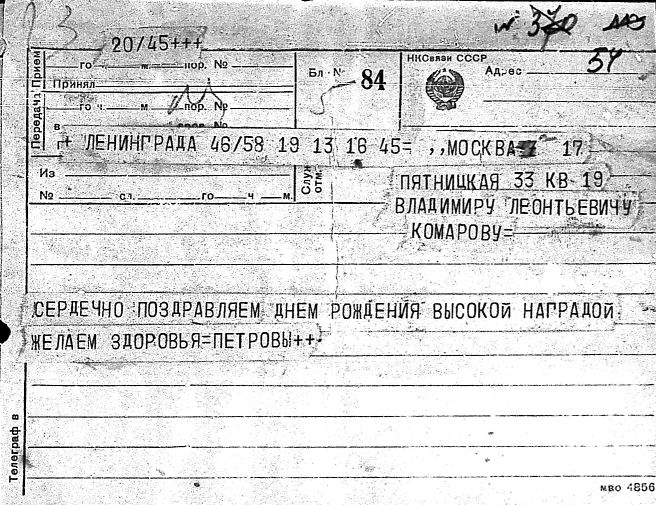 № 370
93
20/45+++
го ч. м. пор. №
Принял
го ч. м пор. №
Передача Прием
Бл. № 84
НКСвязи СССР
Адрес 54
г+ ЛЕНИНГРАДА 46/58 19 13 16 45= ,,МОСКВА 17
Из
№ сл. го ч м.
Служ. отм.
ПЯТНИЦКАЯ 33 КВ 19
ВЛАДИМИРУ ЛЕОНТЬЕВИЧУ
КОМАРОВУ=
СЕРДЕЧНО ПОЗДРАВЛЯЕМ ДНЕМ РОЖДЕНИЯ ВЫСОКОЙ НАГРАДОЙ
ЖЕЛАЕМ ЗДОРОВЬЯ=ПЕТРОВЫ++
Телеграф в
МВО 4856